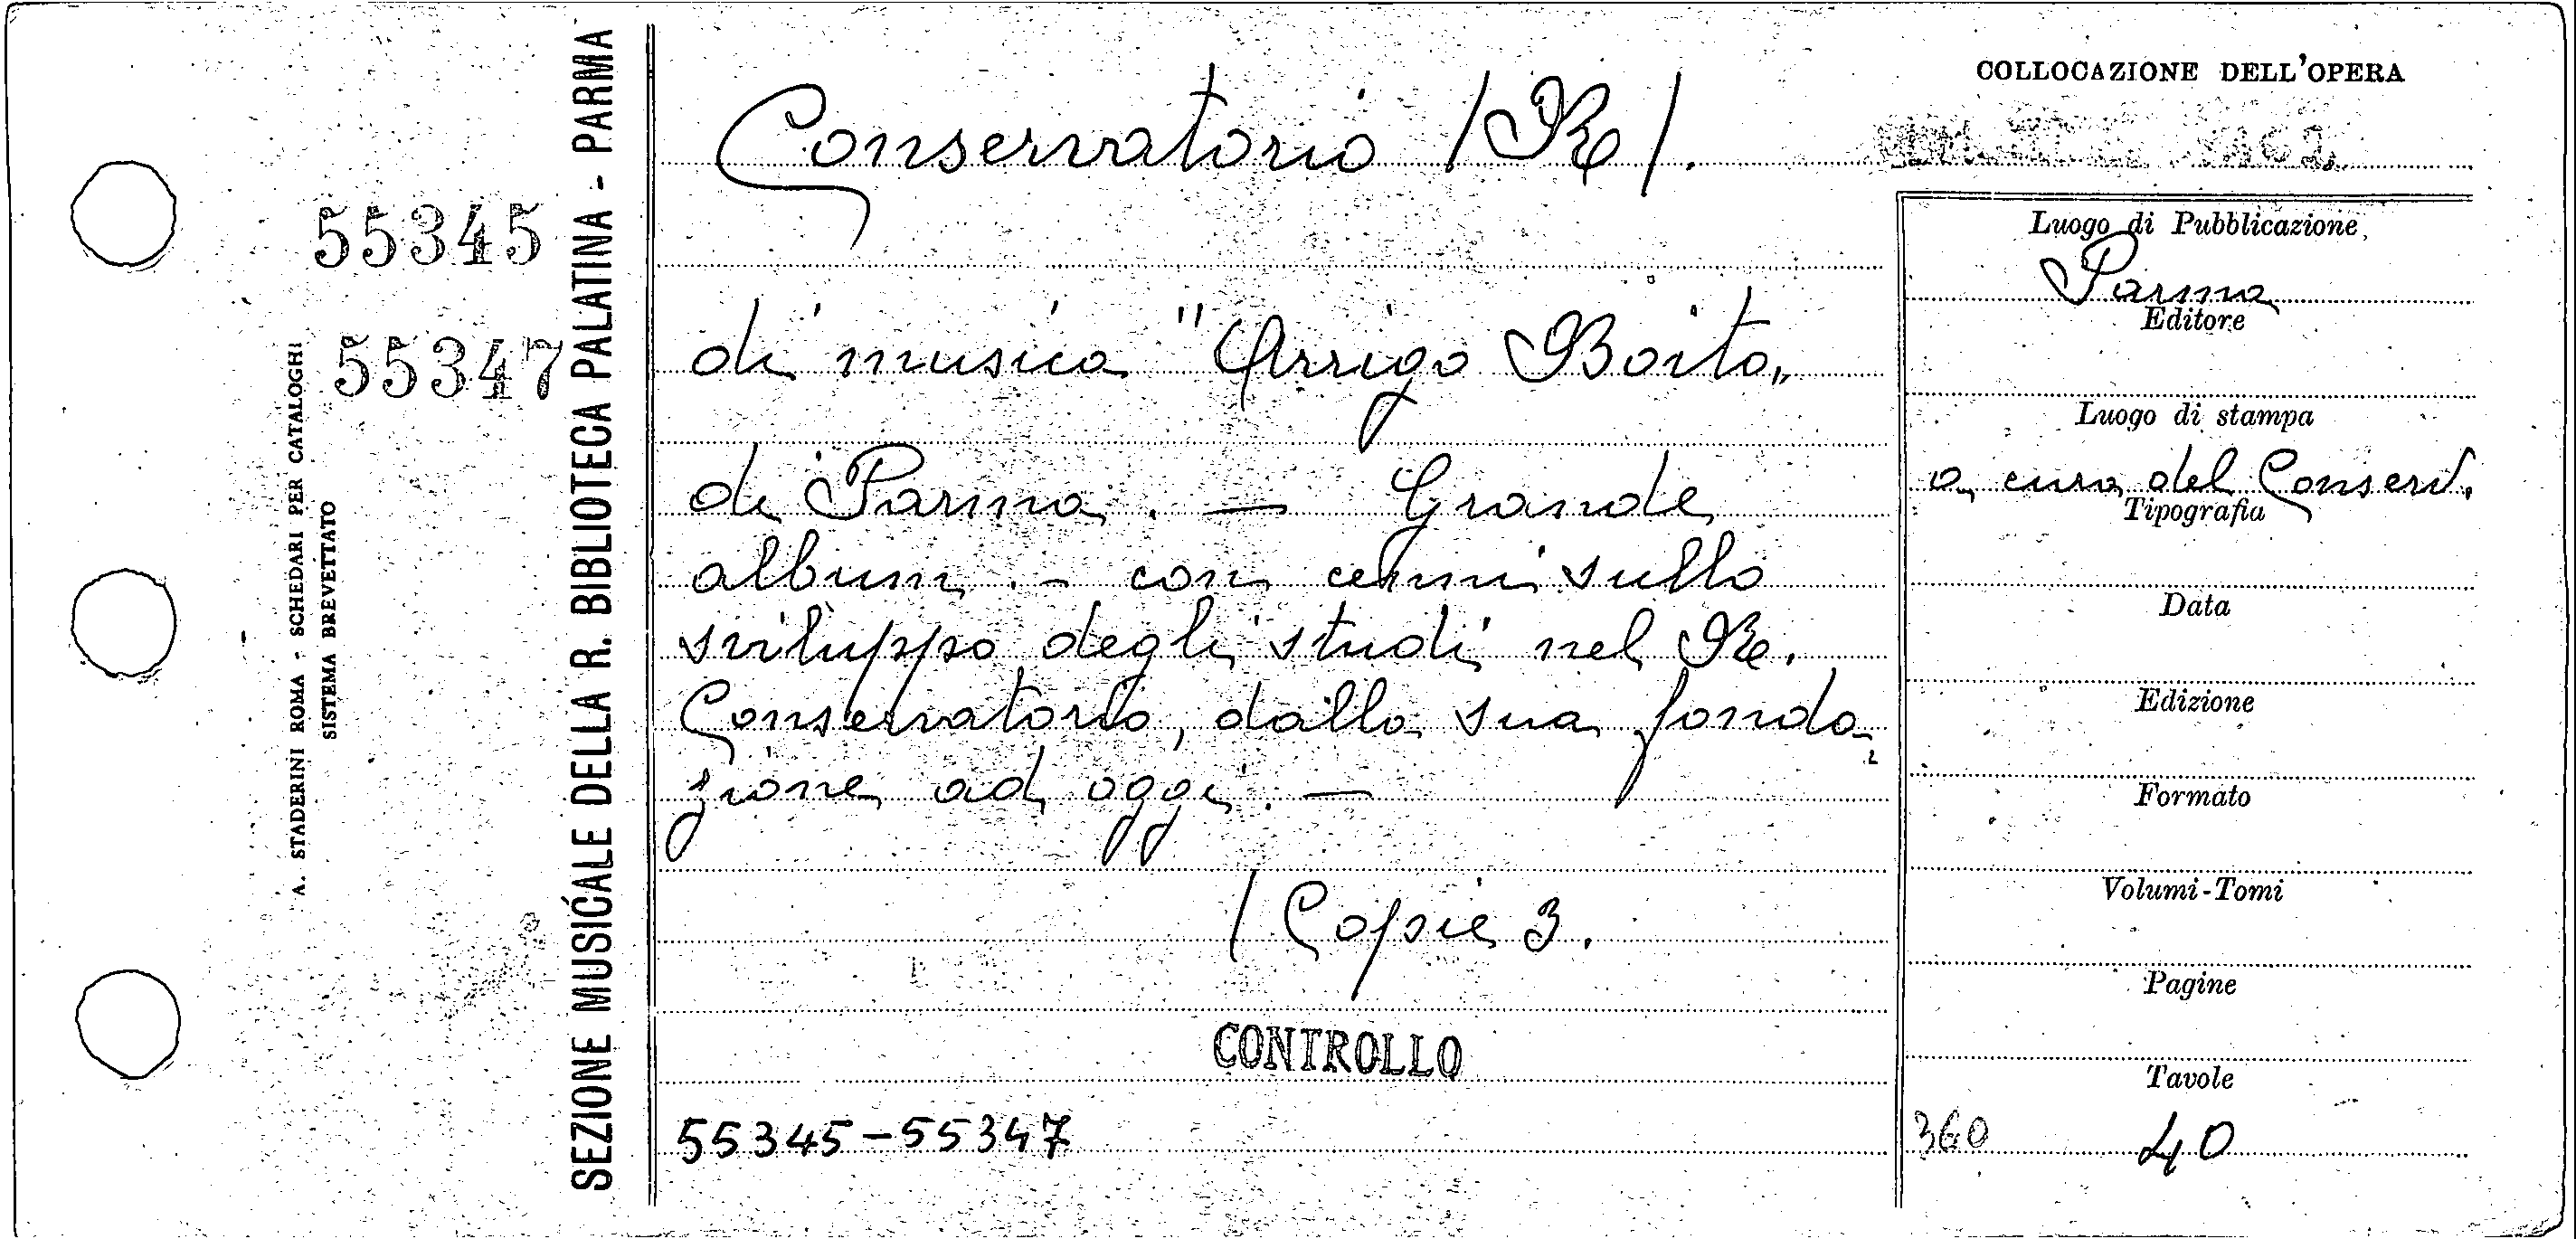 COLLOCAZIONE DELL'OPERA
Conservatorio /R/.
di musica "Arrigo Boito„
di Parma. — Grande
album. - con cenni sullo
sviluppo degli studi nel R.
Conservatorio, dalla sua fonda
zione ad oggi. —
/ Copie 3.
CONTROLLO
55345-55347
Luogo di Pubblicazione
Parma
Editore
Luogo di stampa
a cura del Conserv.
Tipografia
Data
Edizione
Formato
Volumi-Tomi
Pagine
Tavole
360 40
55345
55347
A. STADERINI ROMA - SCHEDARI PER CATALOGHI
SISTEMA BREVETTATO
SEZIONE MUSICALE DELLA R. BIBLIOTECA PALATINA - PARMA